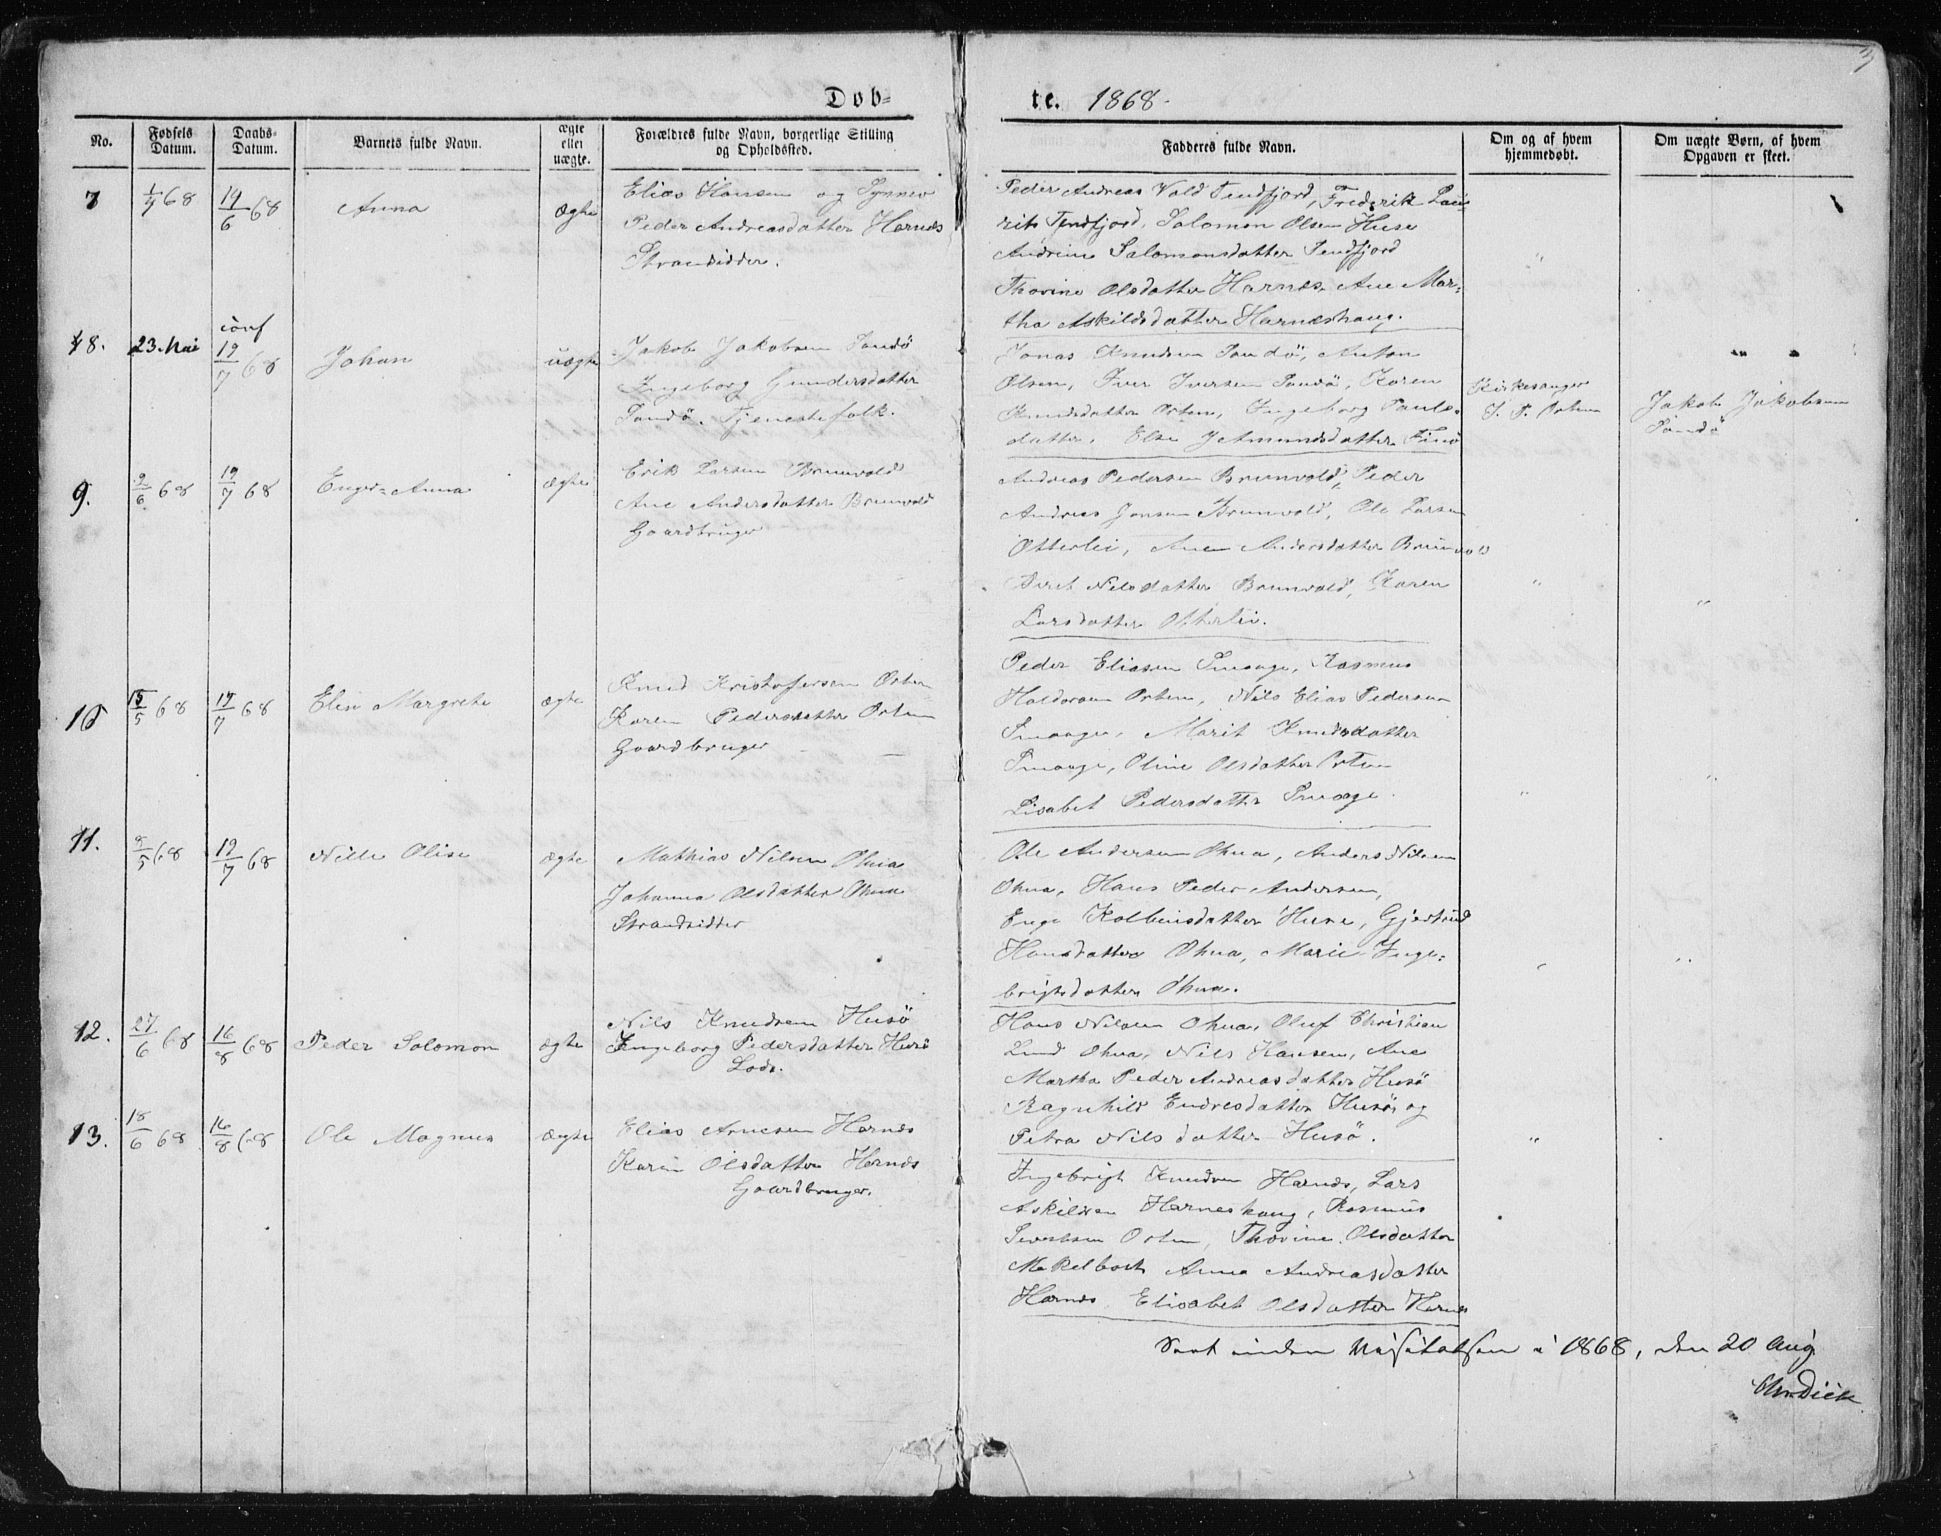 3
Døb=
te. 1868.
No.
Fødsels Datum.
Daabs- Datum.
Barnets fulde Navn.
ægte eller uægte.
Forældres fulde Navn, borgerlige Stilling og Opholdssted.
Fadderes fulde Navn.
Om og af hvem hjemmedøbt.
Om uægte Børn, af hvem Opgaven er skeet.
7
68
19/6 68
Anna
ægte
Elias Hansen og Synnev
Peder Andreasdatter Harnes
Strandsidder.
Peder Andreas Vold Tendfjord, Frederik Lau=
rits Tendfjord, Salomon Olsen Huse
Andrine Salomonsdatter Tendfjord
Thorine Olsdatter Harnes, Ane Mar=
tha Askildsdatter Harneshaug.
"
8.
23. Mai
conf
19/7 68
Johan
uægte
Jakob Jakobsen Sandø
Ingeborg Gundersdatter
Sandø. Tjenestefolk.
Jonas Knudsen Sandø, Anton
Olsen, Iver Iversen Sandø, Karen
Knudsdatter Orten, Ingeborg Pauls=
datter, Else Amundsdatter Finø
Kirkesanger
Orten
Jakob Jakobsen
Sandø
9.
9/6 68
19/7 68
Enger=Anna
ægte
Erik Larsen Brunvold
Ane Andersdatter Brunvold
Gaardbruger
Andreas Pedersen Brunvold, Peder
Andreas Jonsen Brunvold, Ole Larsen
Otterlei, Ane Andersdatter Brunvold
Beret Nilsdatter Brunvold, Karen
Larsdatter Otterlei.
"
"
10
15/5 68
19/7 68
Elen Margrete
ægte
Knud Kristoffersen Orten
Karen Pedersdatter Orten
Gaardbruger
Peder Eliasen Smaage, Rasmus
Haldorsen Orten, Nils Elias Pedersen
Smaage, Marit Knudsdatter
Smaage, Oline Olsdatter Orten
Lisabet Pedersdatter Smaage.
"
"
11.
9/5 68
19/7 68
Nille Olise
ægte
Mathias Nilsen Ohna
Johanna Olsdatter Ohna
Strandsidder
Ole Andersen Ohna, Anders Nilsen
Ohna, Hans Peder Andersen,
Enge Kolbeinsdatter Huse, Gjertrud
Hansdatter Ohna, Marie Inge=
brigtsdatter Ohna.
"
"
12.
27/6 68
16/8 68
Peder Salomon
ægte
Nils Knudsen Husø
Ingeborg Pedersdatter Husø
Lods.
Hans Nilsen Ohna, Oluf Christian
Lund Ohna, Nils Hansen, Ane
Martha Peder Andreasdatter Husø
Ragnhild Endresdatter Husø, og
Petra Nilsdatter Husø.
"
13.
18/6 68
16/8 68
Ole Magnus
ægte
Elias Arnesen Harnes
Karen Olsdatter Harnes
Gaardbruger.
Ingebrigt Knudsen Harnes, Lars
Askildsen Harneshaug, Rasmus
Sivertsen Orten, Thorine Olsdatter
Mekelbost Anna Andreasdatter
Harnes, Elisabet Olsdatter Harnes
Seet under Visitatsen i 1868, den 20 Aug